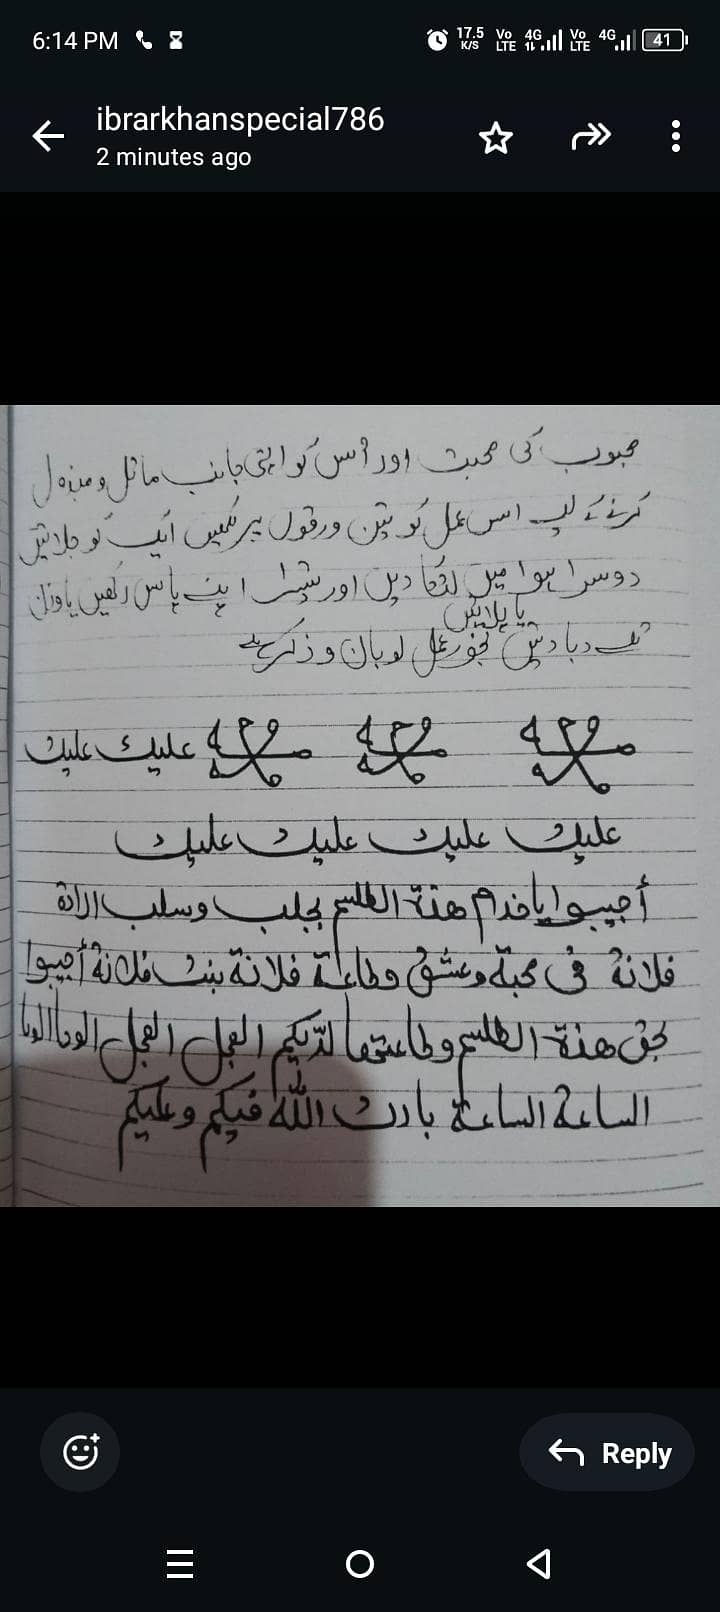 6:14 PM
17.5 K/S Vo LTE 4G Vo LTE 4G 41
ibrarkhanspecial786
2 minutes ago
محبوب کی محبت اور اس کو اپنی جانب مائل و مبذول
کرنے کے لیے اس عمل کو تین ورقوں پر لکھیں ایک کو جلائیں
دوسرا ہوا میں لٹکا دیں اور تیسرا اپنے پاس رکھیں یا وزن
یا پلائیں
تلے دبا دیں بخور عمل لوبان و ذکر ہے
عليك عليك
عليك عليك عليك عليك
أجيبوا ياخدام هذة الطلسم بجلب وسلب ارادة
فلانة فى محبة وعشق وطاعة فلانة بنت فلانة أجيبوا
بحق هذة الطلسم وطاعتها لديكم العجل العجل الوحا الوحا
الساعة الساعة بارك الله فيكم وعليكم
Reply